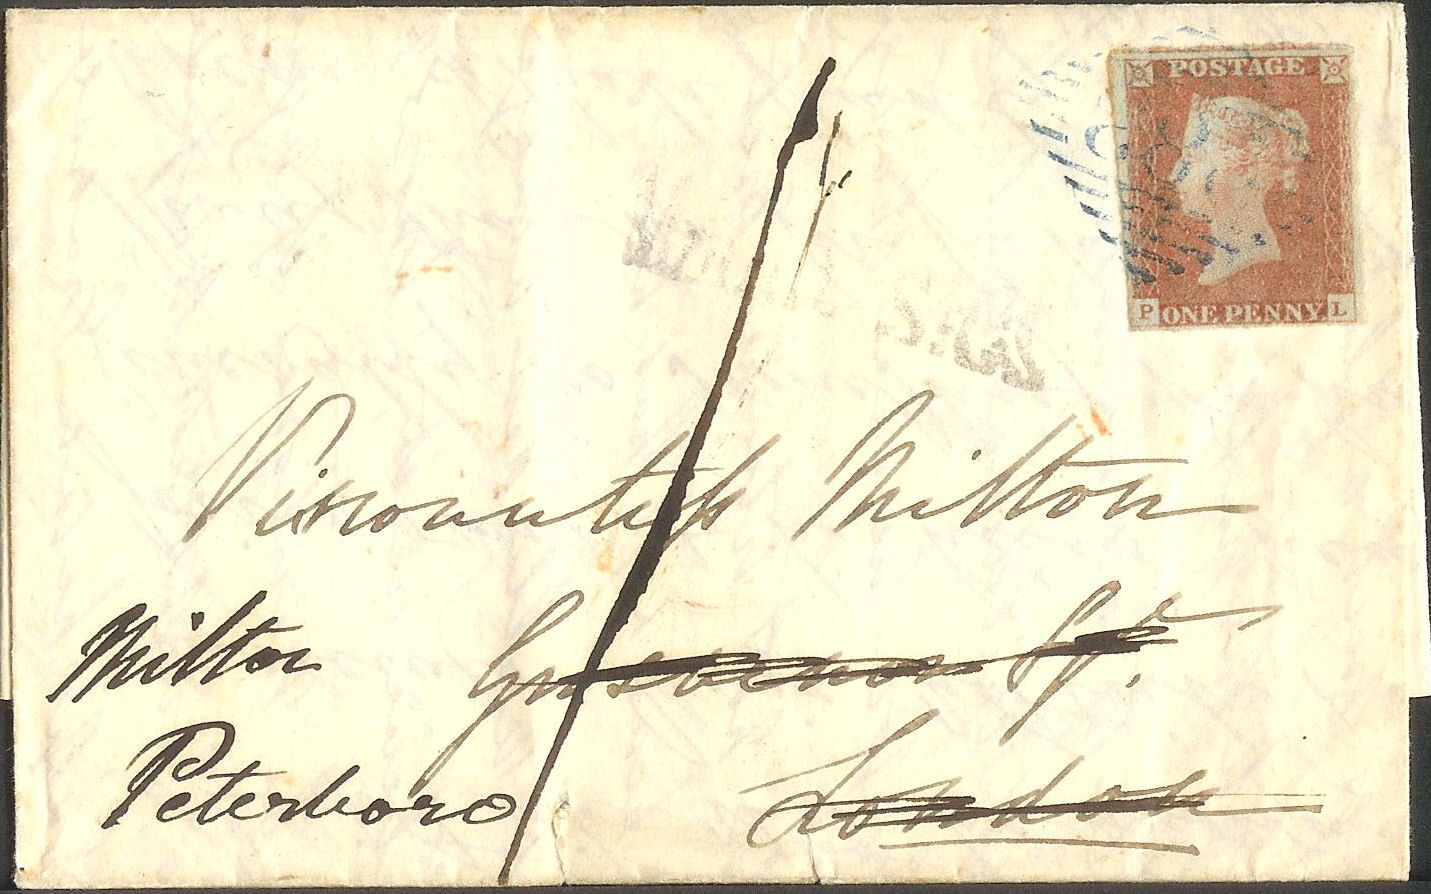 POSTAGE
P ONE PENNY L
Viscountess Milton
Grosvenor Sqr.
London
Milton
Peterboro